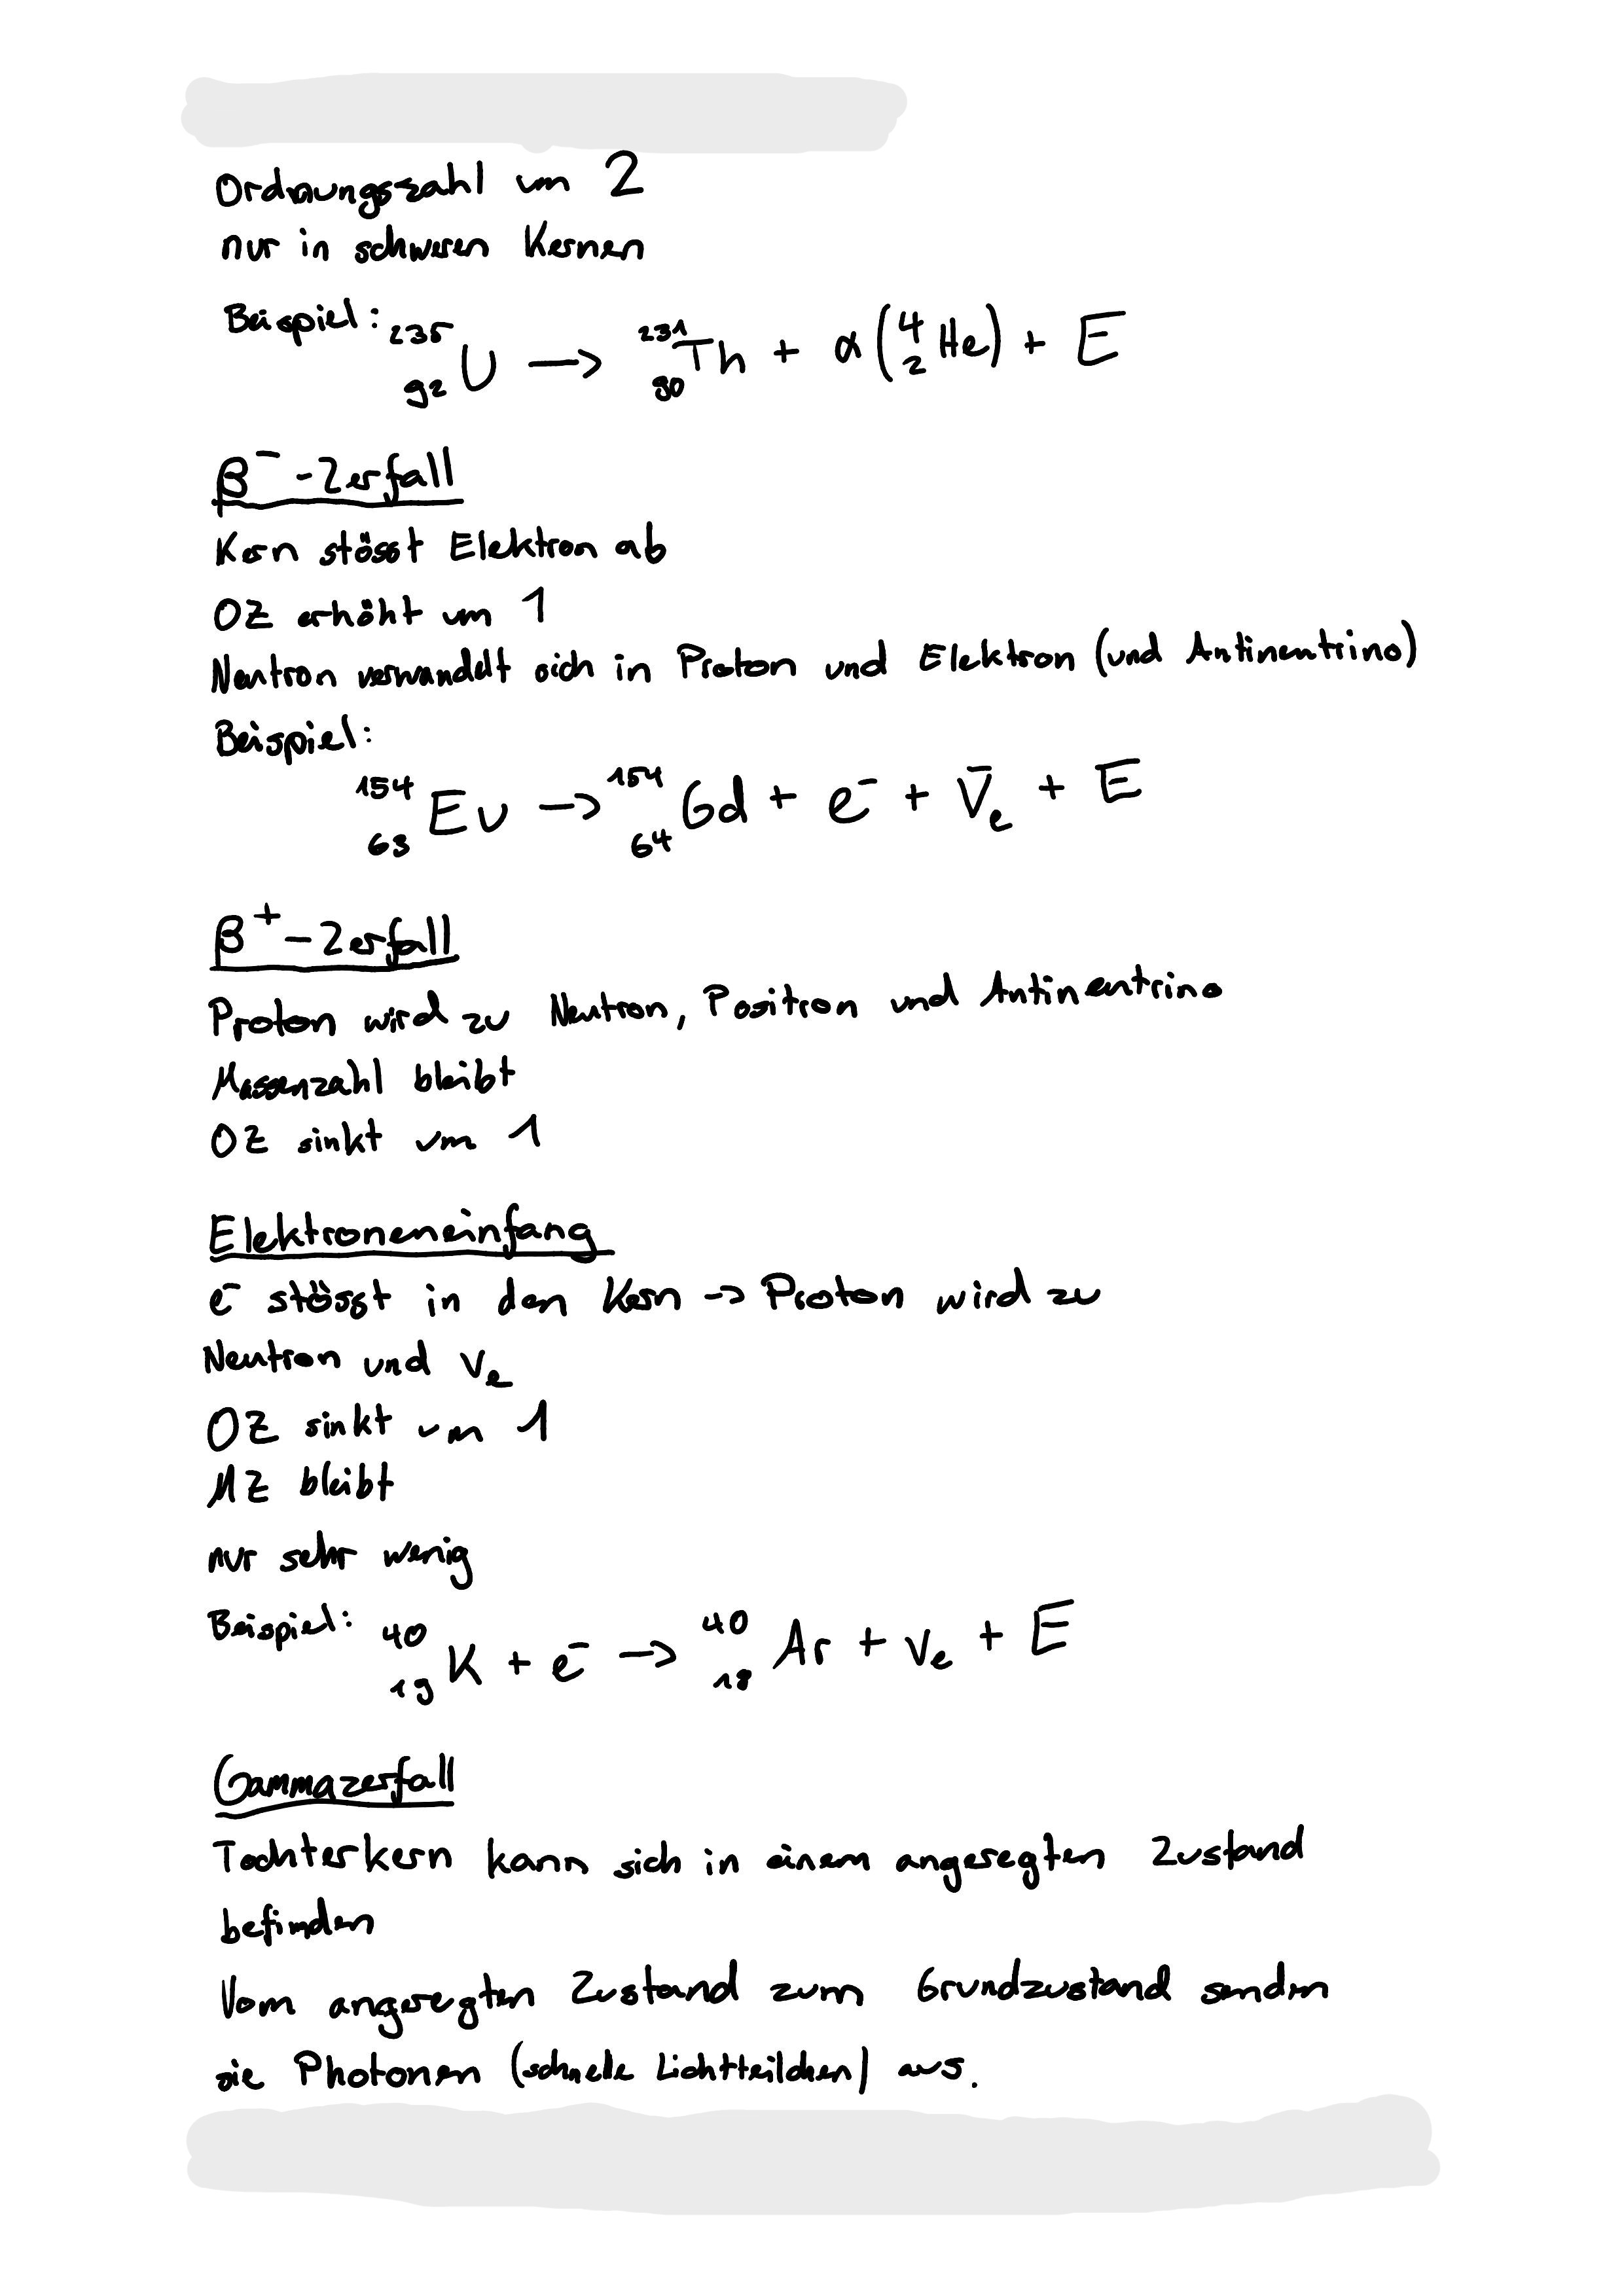 Ordnungszahl um 2
nur in schweren Kernen
Beispiel: ²³⁵₉₂U → ²³¹₉₀Th + α(⁴₂He) + E
β⁻-Zerfall
Kern stösst Elektron ab
OZ erhöht um 1
Neutron verwandelt sich in Proton und Elektron (und Antineutrino)
Beispiel:
¹⁵⁴₆₃Eu → ¹⁵⁴₆₄Gd + e⁻ + ν̄ₑ + E
β⁺-Zerfall
Proton wird zu Neutron, Positron und Antineutrino
Massenzahl bleibt
OZ sinkt um 1
Elektroneneinfang
e⁻ stösst in den Kern → Proton wird zu
Neutron und νₑ
OZ sinkt um 1
MZ bleibt
nur sehr wenig
Beispiel: ⁴⁰₁₉K + e⁻ → ⁴⁰₁₈Ar + νₑ + E
Gammazerfall
Tochterkern kann sich in einem angeregten Zustand
befinden
Vom angeregten Zustand zum Grundzustand senden
sie Photonen (schnelle Lichtteilchen) aus.